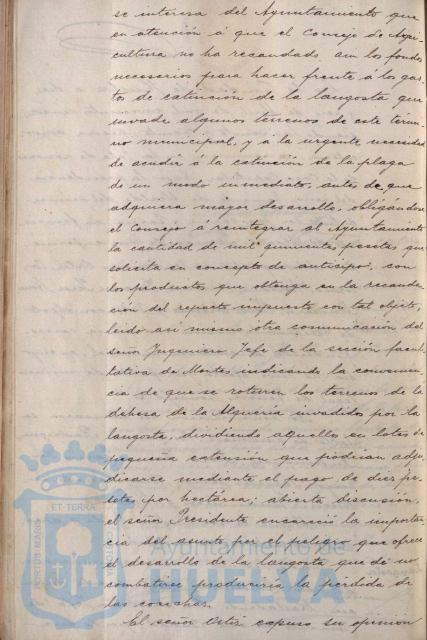 se interesa del Ayuntamiento que
en atención á que el Consejo de Agri-
cultura no ha recaudado aún los fondos
necesarios para hacer frente á los gas-
tos de extinción de la langosta que
invade algunos terrenos de este térmi-
no municipal, y á la urgente necesidad
de acudir á la extinción de la plaga
de un modo inmediato, antes de que
adquiera mayor desarrollo, obligándose
el Consejo á reintegrar al Ayuntamiento
la cantidad de mil quinientas pesetas que
solicita en concepto de anticipo, con
los productos que obtenga en la recauda-
ción del reparto impuesto con tal objeto,
leido asi mismo otra comunicación del
señor Ingeniero Jefe de la sección facul-
tativa de Montes indicando la convenien-
cia de que se roturen los terrenos de la
dehesa de la Alquería invadidos por la
langosta, dividiendo aquellos en lotes de
pequeña extensión que podrían adju-
dicarse mediante el pago de diez pe-
setas por hectárea; abierta discusión,
el señor Presidente encareció la importan-
cia del asunto por el peligro que ofrece
el desarrollo de la langosta que de no
combatirse produciría la pérdida de
las cosechas.
El señor expuso su opinión
ET TERRA
PORTUS MARIS
Ayuntamiento de
HUELVA